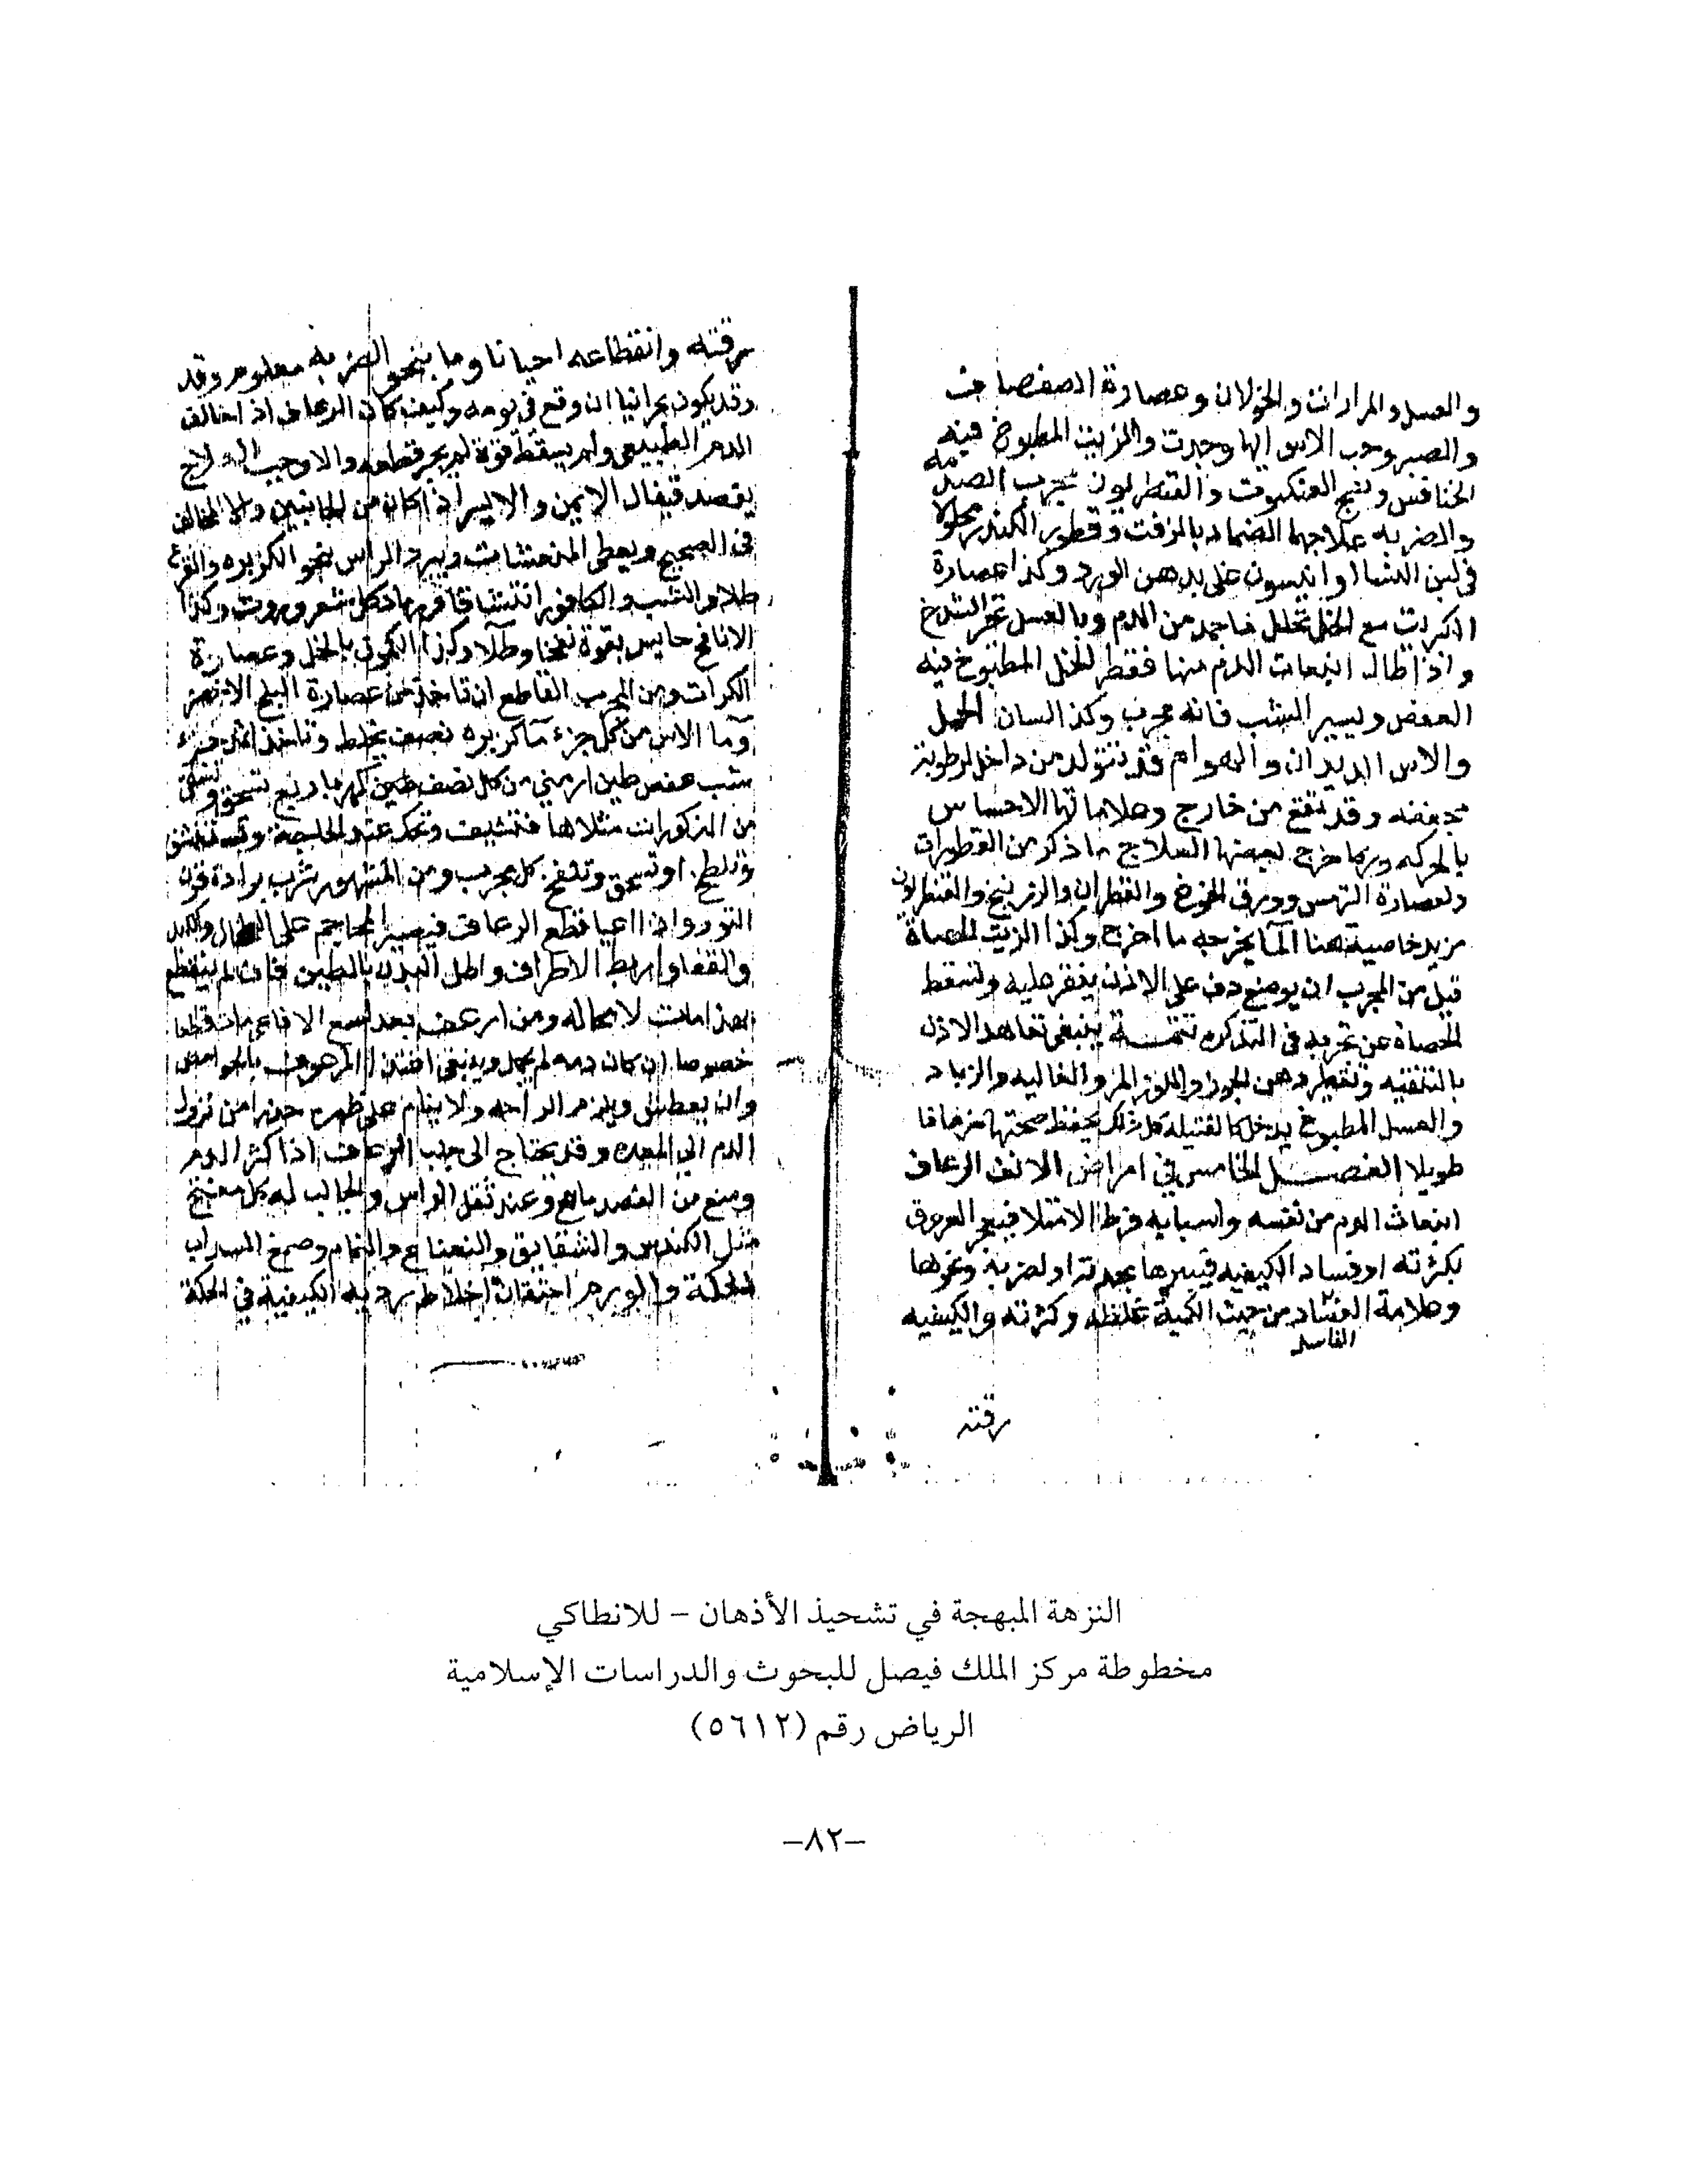 والعسل والمرارات والخولان وعصارة الصفصاف
والصبر وحب الاس ايها وجدت والزيت المطبوخ فيه
الخنافس ونسج العنكبوت والقنطريون مجرب الصدمه
والضربه علاجها الضماد بالزفت وقطور الكندر محلولا
في لبن النسا او انيسون غلي بدهن الورد وكذا عصارة
الكراث مع الخل تحلل ما جمد من الدم وبالعسل تجبر الشدخ
واذا طال انبعاث الدم منها فقطر الخل المطبوخ فيه
العفص ويسير الشب فانه مجرب وكذا لسان الحمل
والاس الديدان والهوام قد تتولد من داخل لرطوبة
متعفنه وقد تقع من خارج وعلاماتها الاحساس
بالحركه وربما خرج بعضها العلاج ما ذكر من القطورات
ولعصارة الترمس وورق الخوخ والقطران والزرنيخ والقنطريون
مزيد خاصية هنا الما يخرجه ما اخرج وكذا الزيت الحصاة
قيل من المجرب ان يوضع دف على الاذن ينقر عليه وتسقط
الحصاة عن تجربه في التذكره تتمة ينبغي تعاهد الاذن
بالتنقيه وتقطير دهن الجوز واللوز المر والغاليه والزباد
والعسل المطبوخ يدخل كالفتيله كل ذلك يحفظ صحتها زمانا
طويلا الفصل الخامس في امراض الانف الرعاف
انبعاث الدم من نفسه واسبابه فرط الامتلا فيفجر العروق
بكثرته او فساد الكيفيه فيسيرها بحدته او لضربة ونحوها
وعلامة الفساد من حيث الكمية غلظه وكثرته والكيفيه
الفاسد
رقته
رقته وانقطاعه احيانا وما بنحو الضربه معلوم وقد
وقد يكون بحرانيا ان وقع في يومه وكيف كان الرعاف اذا خالف
الدم الطبيعي ولم يسقط قوة لم يجز قطعه والا وجب العلاج
بفصد قيفال الايمن والايسر اذا كان من الجانبين والا المخالف
في الصحيح ويعطى المنعشات ويبرد الراس بنحو الكزبره والقرع
طلاء والشب والكافور انتشاقا ورماد كل شعر وروث وكذا
الانافح حابس بقوة نفخا وطلاء وكذا الكمون بالخل وعصارة
الكراث ومن المجرب القاطع ان تاخذ من عصارة البلح الاخضر
وما الاس من كل جزء ما كزبره نصف يخلط وتاخذ اثمد جزء
شب عفص طين ارمني من كل نصف طين كهربا ربع تسحق وتسقى
من المذكورات مثلاها فتشيف وتحك عند الحاجة وتستنشق
وتلطخ او تسحق وتنفخ كل مجرب ومن المشهور شرب برادة قرن
الثور واذا اعيا قطع الرعاف فيصير المحاجم على الطحال والكبد
والقفا واربط الاطراف واطل البدن بالطين فان لم ينقطع
بهذا مات لا محاله ومن ارعف بعد لسع الافاعي مات قطعا
خصوصا ان كان دمه لم يجمد وينبغي اغتذا المرعوف بالحوامض
وان يعطش ويلزم الراحه ولا ينام على ظهره حذرا من نزول
الدم الى المعده وقد يحتاج الى جلب الرعاف اذا كثر الدم
ومنع من الفصد مانع وعند ثقل الراس والجالب له كل مفتح
مثل الكندس والشقايق والنعناع والنمام وصمغ السداب
الحكة والورم احتقان اخلاط ردية الكيفية في الحكة
النزهة المبهجة في تشحيذ الأذهان – للانطاكي
مخطوطة مركز الملك فيصل للبحوث والدراسات الإسلامية
الرياض رقم (٥٦١٢)
–٨٢–